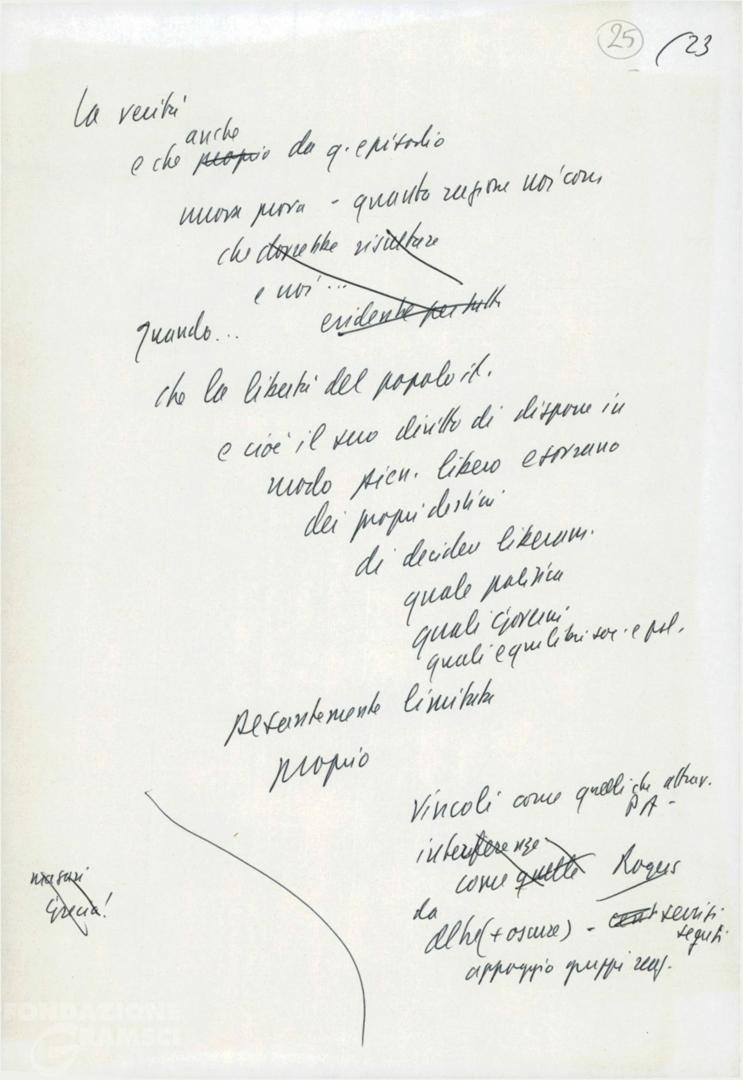 25 (23
La verità
anche
e che proprio da q. episodio
nuova prova - quanta ragione noi com
che dovrebbe risultare
e noi...
quando... evidente per tutti
che la libertà del popolo it.
e cioè il suo diritto di disporre in
modo pien. libero e sovrano
dei propri destini
di decidere liberam.
quale politica
quali governi
quali equilibri soc. e pol.
Pesantemente limitata
proprio
Vincoli come quelli che attrav.
PA -
interferenze
come quelle Rogers
da
altre (+ oscure) - servizi
segreti
appoggio gruppi reaz.
Grecia!
FONDAZIONE
GRAMSCI